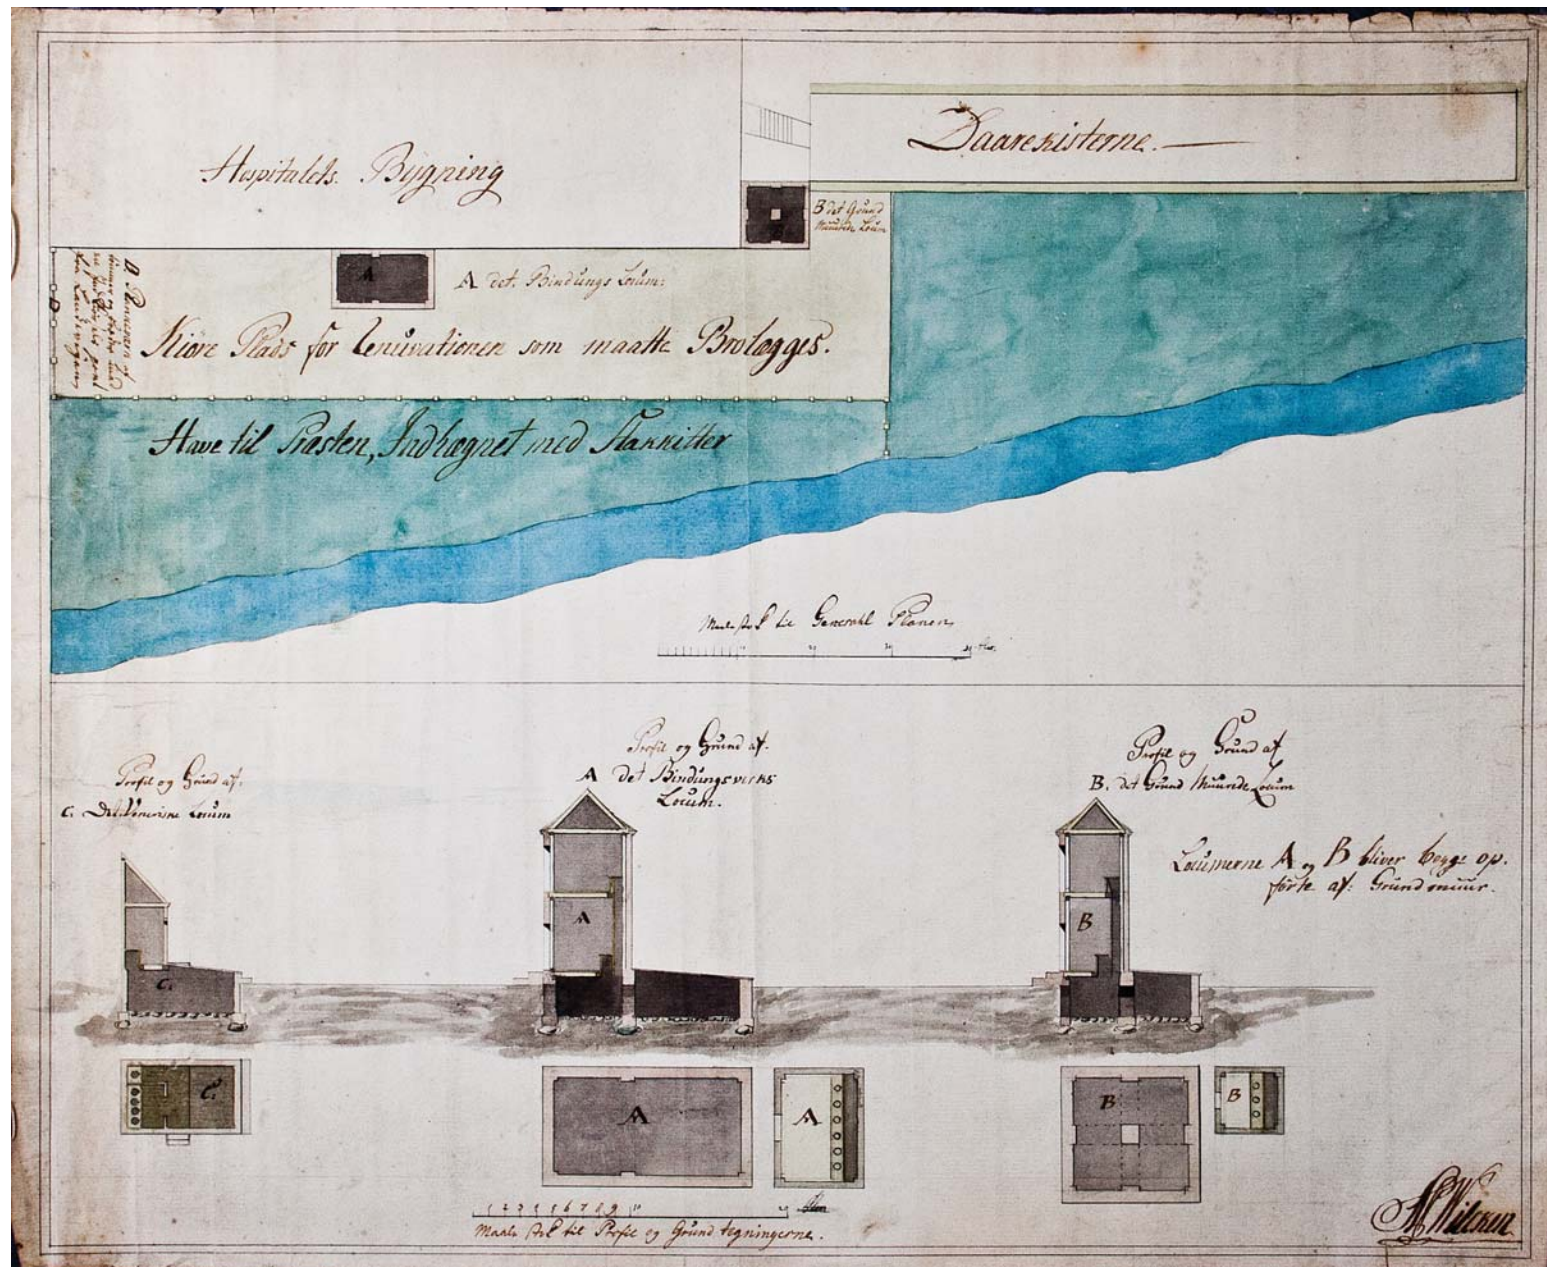 Hospitalets. Bygning
Daarekisterne.
B det Grund
Muurede Locum
A
A det. Bindings Locum:
D
Kiøre Plads for Renovationen som maatte Brolægges.
Have til Præsten, Indhægnet med Stakkitter
Maale stok til Generahl Planen
Profil og Grund af.
C. Det Veneriske Locum
Profil og Grund af.
A det Bindingsverks
Locum.
Profil og Grund af
B. det Grund Muurede Locum
Locumerne A og B bliver begge op.
førte af: Grundmuur.
A
B
C.
C.
A
A
B
B
1 2 3 4 5 6 7 8 9 10
Maale stok til Profil og Grund tegningerne.